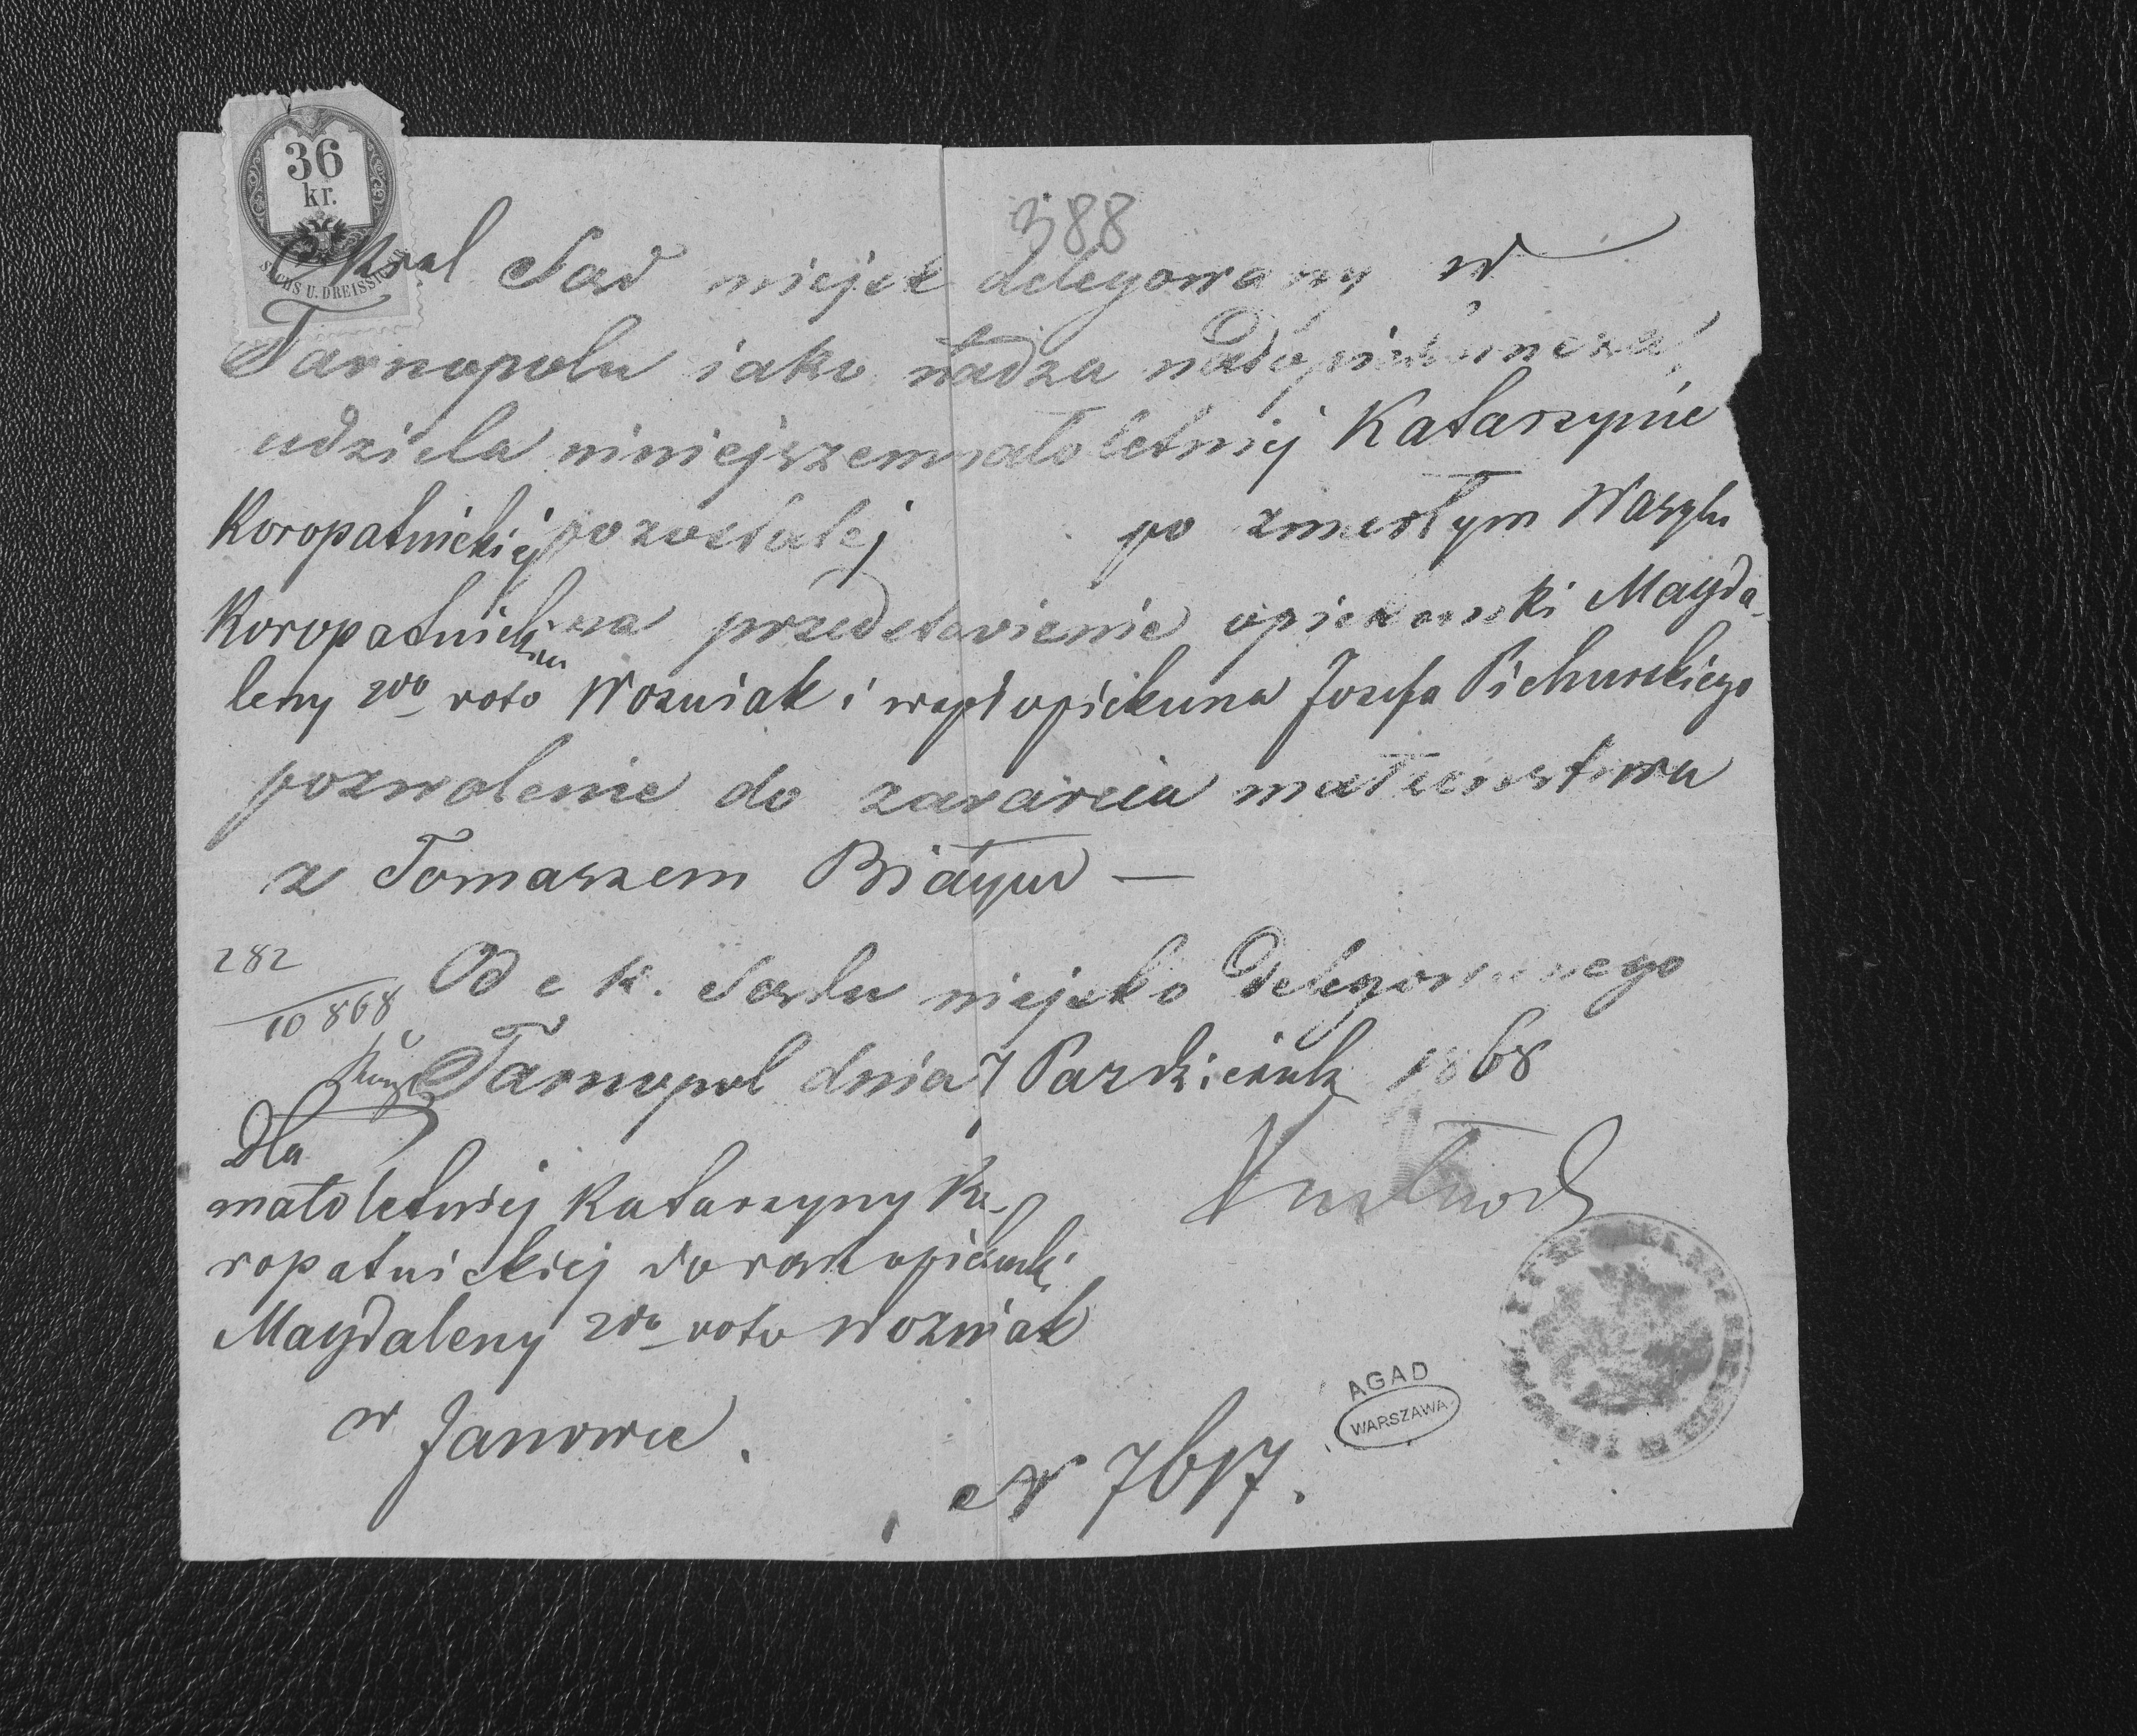 36
kr.
SECHS U. DREISSIG
388
C kral Sąd miejsk delegowany w
Tarnopolu iako władza nadopiekuńcza
udziela niniejszem małoletniej Katarzynie
Koropatnickiej pozostałej po zmarłym Wasylu
Koropatnickim na przedstawienie opiekunki Magda-
leny 2do voto Wozniak i współopiekuna Josefa Pichurskiego
pozwolenie do zawarcia małżenstwa
z Tomaszem Białym —
282
10 868
Od c k. Sądu miejsko delegowanego
Tarnopol dnia 7 Pazdziernik 1868
Dla
małoletniej Katarzyny Ko-
ropatnickiej do rąk opiekunki
Magdaleny 2do voto Wozniak
w Janowce.
AGAD
WARSZAWA
N 7617.